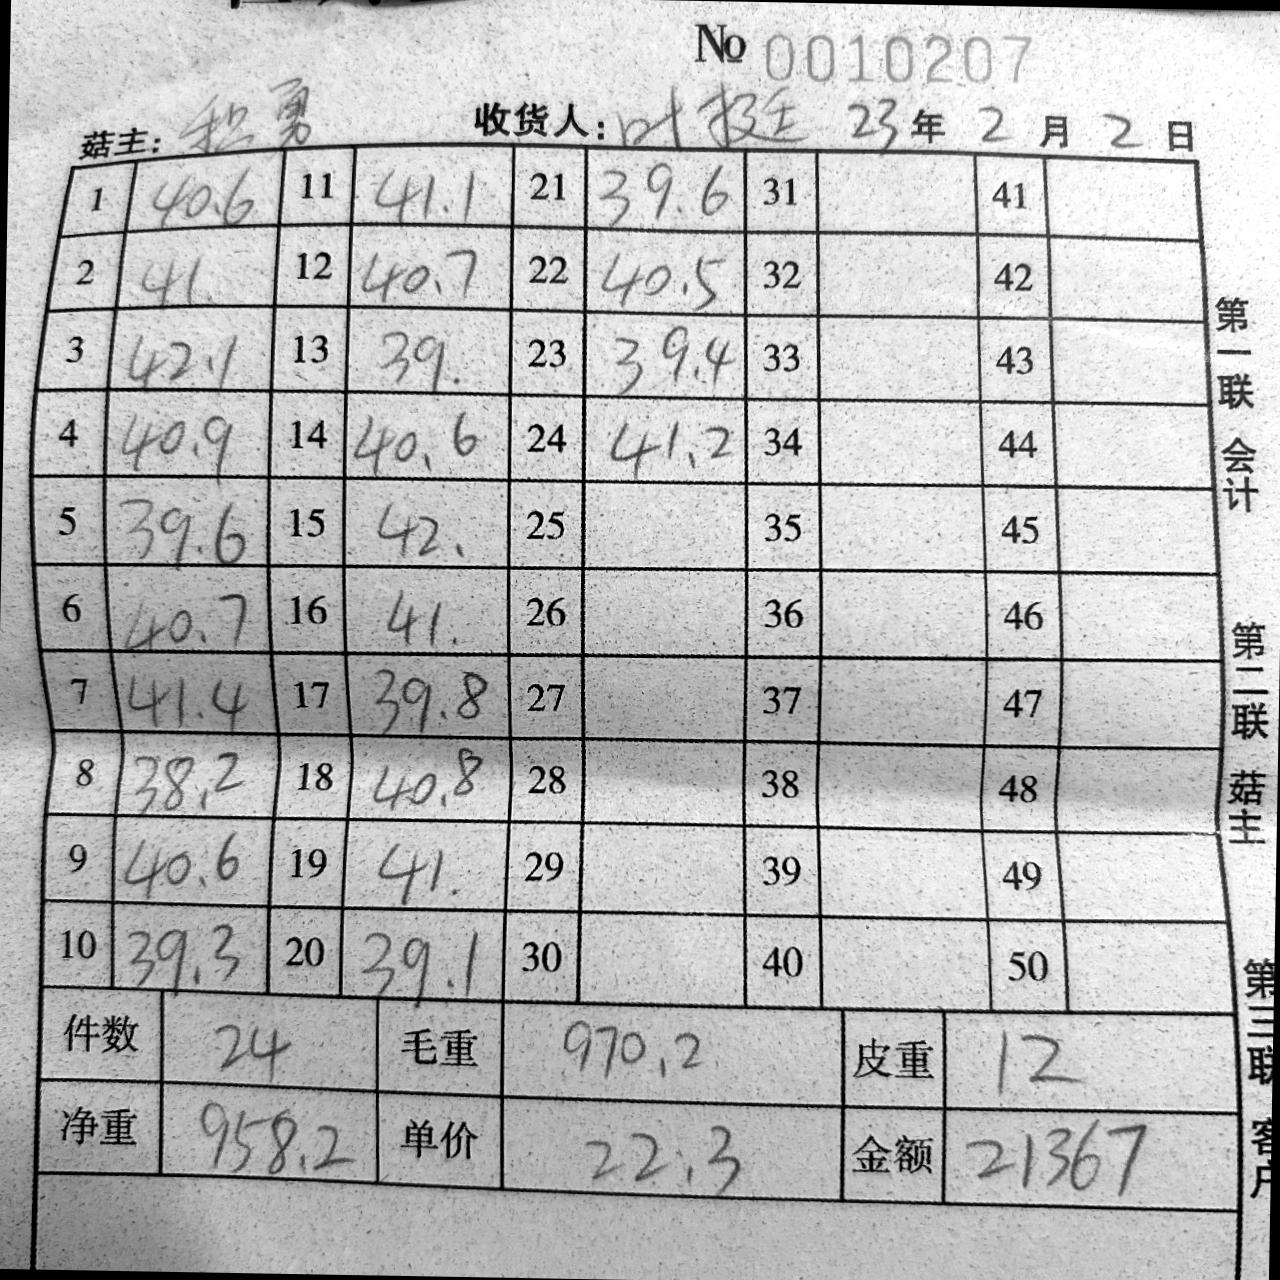 № 0010207
菇主: 程勇 收货人: 叶挺 23年2月2日
1 40.6 11 41.1 21 39.6 31 41
2 41. 12 40.7 22 40.5 32 42
3 42.1 13 39. 23 39.4 33 43
4 40.9 14 40.6 24 41.2 34 44
5 39.6 15 42. 25 35 45
6 40.7 16 41. 26 36 46
7 41.4 17 39.8 27 37 47
8 38.2 18 40.8 28 38 48
9 40.6 19 41. 29 39 49
10 39.3 20 39.1 30 40 50
件数 24 毛重 970.2 皮重 12
净重 958.2 单价 22.3 金额 21367
第一联 会计
第二联 菇主
第三联 客户